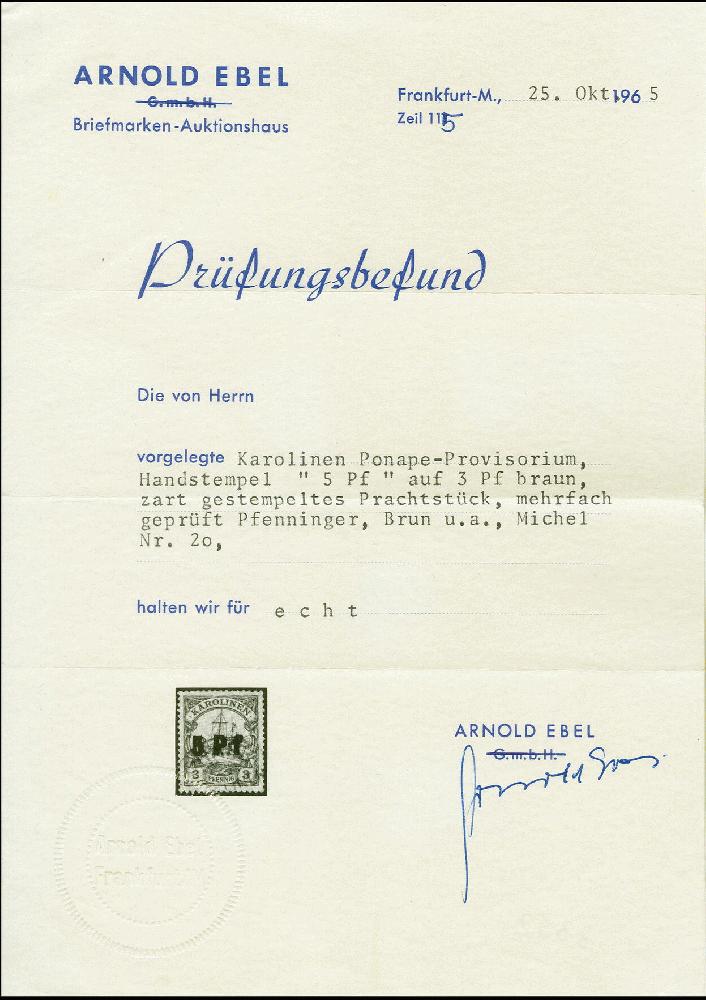 ARNOLD EBEL
G.m.b.H.
Briefmarken-Auktionshaus
Frankfurt-M., 25. Okt 1965
Zeil 115
Prüfungsbefund
Die von Herrn
vorgelegte Karolinen Ponape-Provisorium,
Handstempel " 5 Pf " auf 3 Pf braun,
zart gestempeltes Prachtstück, mehrfach
geprüft Pfenninger, Brun u.a., Michel
Nr. 2o,
halten wir für e c h t
KAROLINEN
5 Pf
3 PFENNIG 3
ARNOLD EBEL
G.m.b.H.
Arnold Ebel
Arnold Ebel